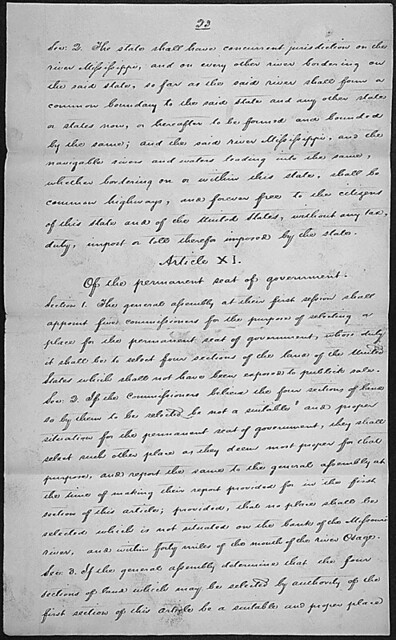 23
Sec. 2. The state shall have concurrent jurisdiction on the
river Mississippi, and on every other river bordering on
the said state, so far as the said river shall form a
common boundary to the said state and any other state
or states now, or hereafter to be formed and bounded
by the same; and the said river Mississippi, and the
navigable rivers and waters leading into the same,
whether bordering on or within this state, shall be
common highways, and forever free to the citizens
of this state and of the United States, without any tax,
duty, impost or toll therefor imposed by the state.
Article XI.
Of the permanent seat of government.
Section 1. The general assembly at their first session shall
appoint five commissioners for the purpose of selecting a
place for the permanent seat of government, whose duty
it shall be to select four sections of the land of the United
States which shall not have been exposed to publick sale.
Sec. 2. If the commissioners believe the four sections of land
so by them to be selected be not a suitable and proper
situation for the permanent seat of government, they shall
select such other place as they deem most proper for that
purpose, and report the same to the general assembly at
the time of making their report provided for in the first
section of this article; provided, that no place shall be
selected which is not situated on the bank of the Missouri
river, and within forty miles of the mouth of the river Osage.
Sec. 3. If the general assembly determine that the four
sections of land which may be selected by authority of the
first section of this article be a suitable and proper place